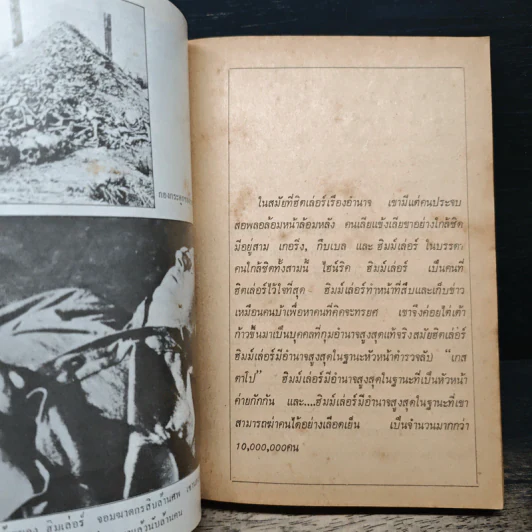 กองกระดูก
ฮิมเล่อร์ จอมฆาตกรสิบล้านศพ
ในสมัยที่ฮิตเล่อร์เรืองอำนาจ เขามีแต่คนประจบ
สอพลอล้อมหน้าล้อมหลัง คนเลียแข้งเลียขาอย่างใกล้ชิด
มีอยู่สาม เกอริง, กึบเบล และ ฮิมม์เล่อร์ ในบรรดา
คนใกล้ชิดทั้งสามนี้ ไฮน์ริค ฮิมม์เล่อร์ เป็นคนที่
ฮิตเล่อร์ไว้ใจที่สุด ฮิมม์เล่อร์ทำหน้าที่สืบและเก็บข่าว
เหมือนคนบ้าเพื่อหาคนที่คิดจะทรยศ เขาจึงค่อยไต่เต้า
ก้าวขึ้นมาเป็นบุคคลที่กุมอำนาจสูงสุดแท้จริงสมัยฮิตเล่อร์
ฮิมม์เล่อร์มีอำนาจสูงสุดในฐานะหัวหน้าตำรวจลับ "เกส
ตาโป" ฮิมม์เล่อร์มีอำนาจสูงสุดในฐานะที่เป็นหัวหน้า
ค่ายกักกัน และ....ฮิมม์เล่อร์มีอำนาจสูงสุดในฐานะที่เขา
สามารถฆ่าคนได้อย่างเลือดเย็น เป็นจำนวนมากกว่า
10,000,000คน